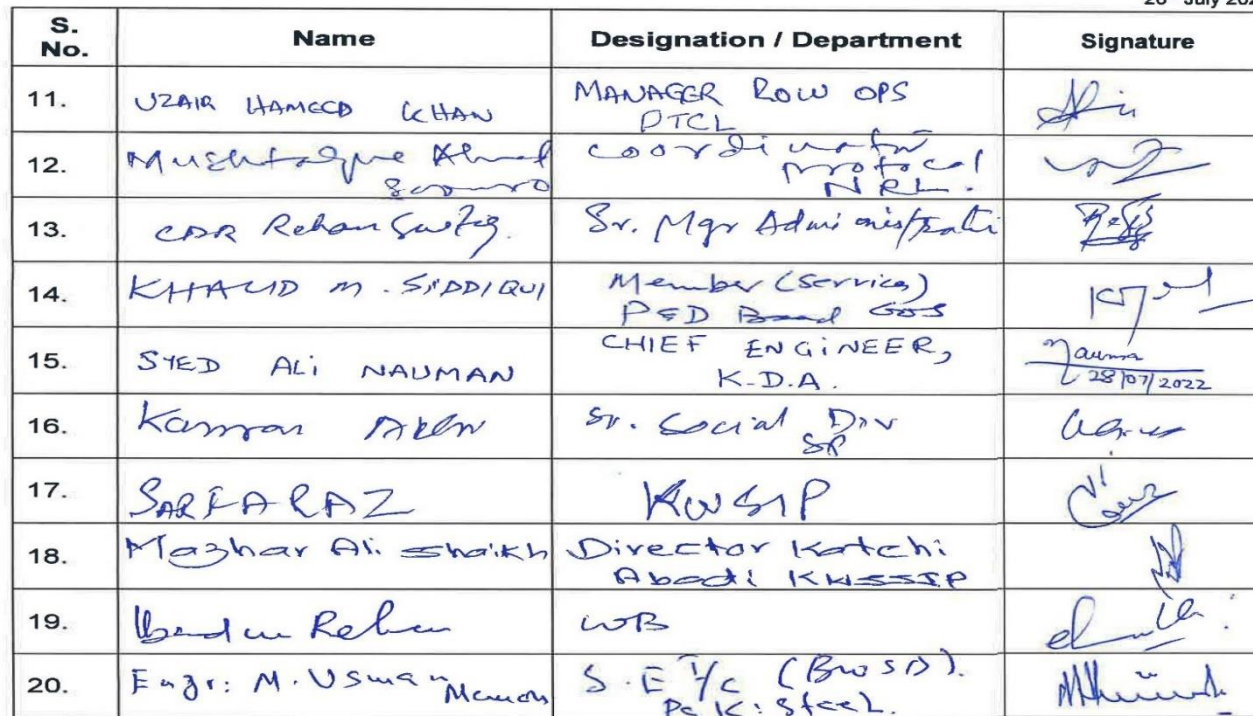 July 202
S. No. Name Designation / Department Signature
11. UZAIR HAMEED KHAN MANAGER ROW OPS
PTCL
12. Mushtaque Ahmed coordinator
protocol
NRL.
13. CDR Rehan Sr. Mgr Administratio
14. KHALID M. SIDDIQUI Member (Services)
P&D Board GOS
15. SYED ALi NAUMAN CHIEF ENGiNEER,
K.D.A.
Nauma
28/07/2022
16. Kamran Sr. Social Dev
SP
17. SARFARAZ KWSSIP
18. Mazhar Ali shaikh Director Katchi
Abadi KWSSIP
19. Rehan WB
20. Engr: M. Usman Memon S.E I/C
Pak: Steel.